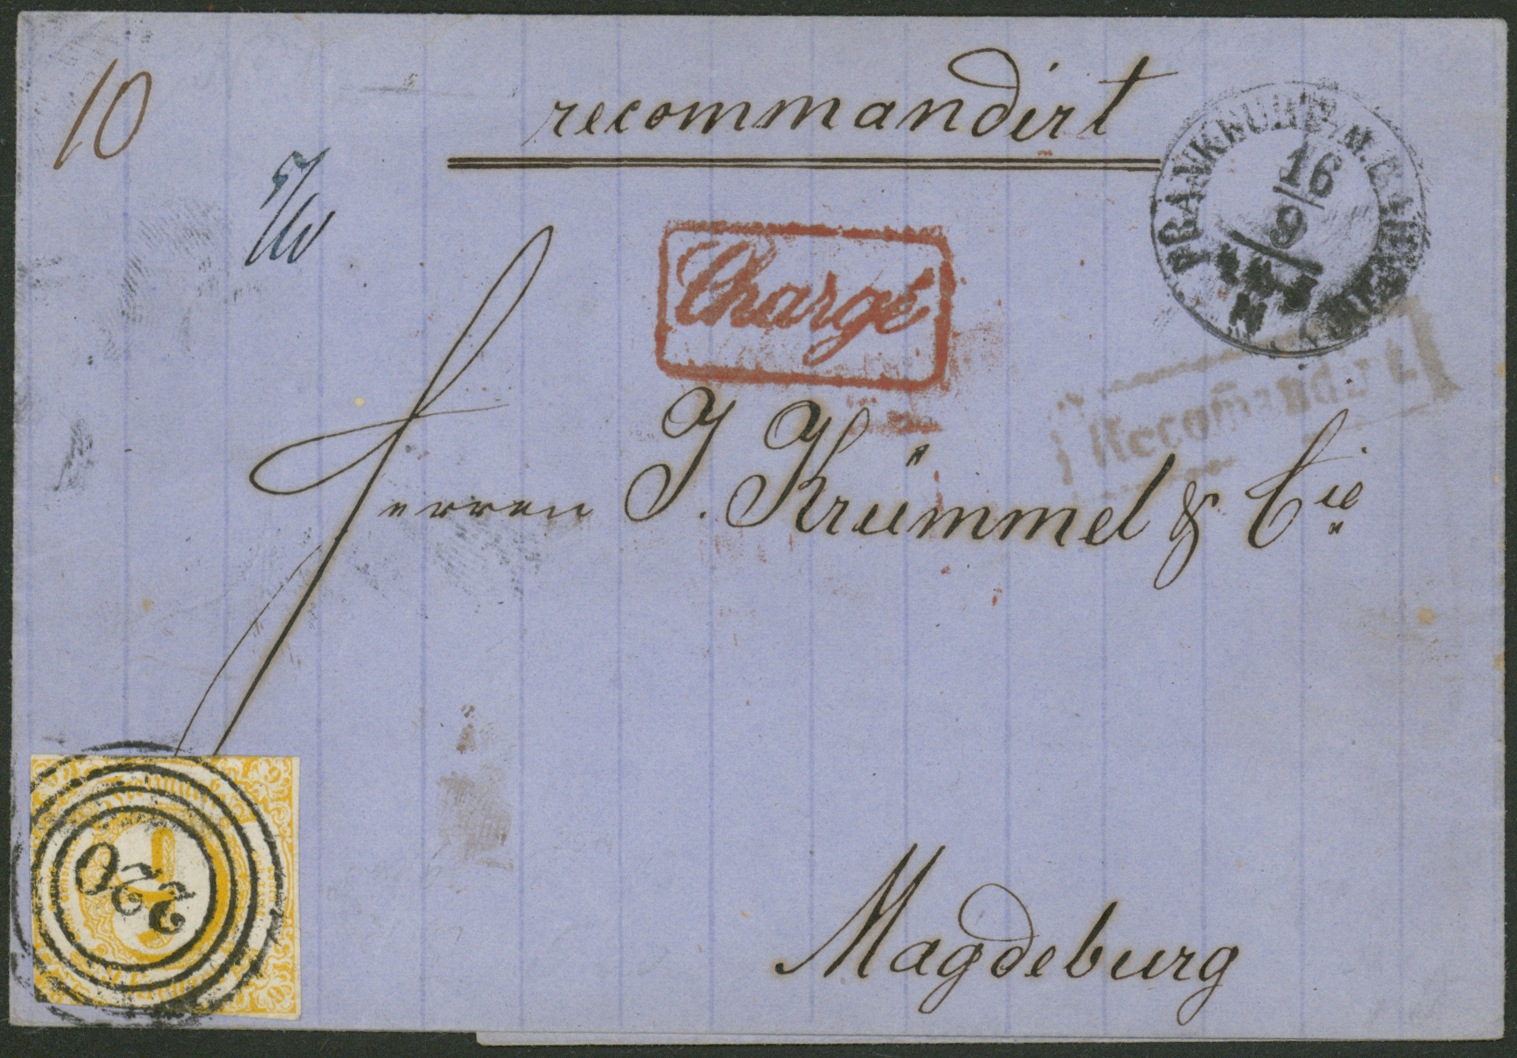 10
recommandirt
FRANKFURT A. M.
16
9
Chargé
Recom̄andirt
Herren J. Krümmel & Cie
220
Magdeburg